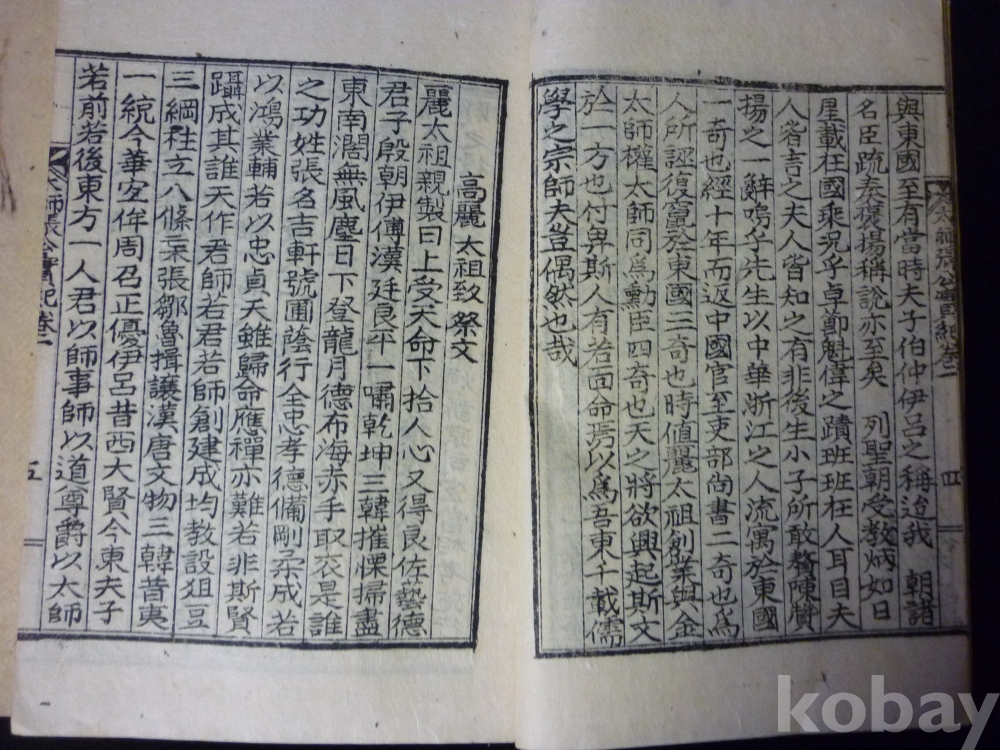 與東國至有當時夫子伯仲伊呂之稱迨我 朝諸
名臣疏奏褒揚稱說亦至矣 列聖朝受教炳如日
星載在國乘況乎卓節魁偉之蹟班班在人耳目夫
人者言之夫人皆知之有非後生小子所敢贅陳贊
揚之一辭嗚乎先生以中華浙江之人流寓於東國
一奇也經十年而返中國官至吏部尚書二奇也爲
人所誣復竄於東國三奇也時値麗太祖創業與金
太師權太師同爲勳臣四奇也天之將欲興起斯文
於一方也付畀斯人有若面命焉以爲吾東千載儒
學之宗師夫豈偶然也哉
太師張公實紀卷二
四
高麗太祖致祭文
麗太祖親製曰上受天命下拾人心又得良佐藝德
君子殷朝伊傅漢廷良平一嘯乾坤三韓摧慄掃盡
東南濶無風塵日下登龍月德布海赤手取衣是誰
之功姓張名吉軒號圃蔭行全忠孝德備剛柔成若
以鴻業輔若以忠貞天雖歸命應禪亦難若非斯賢
躡成其誰天作君師若君若師創建成均教設俎豆
三綱旣立八條乙張鄒魯揖讓漢唐文物三韓昔夷
一統今華宜侔周召正優伊呂昔西大賢今東夫子
若前若後東方一人君以師事師以道尊爵以太師
太師張公實紀卷二
五
kobay